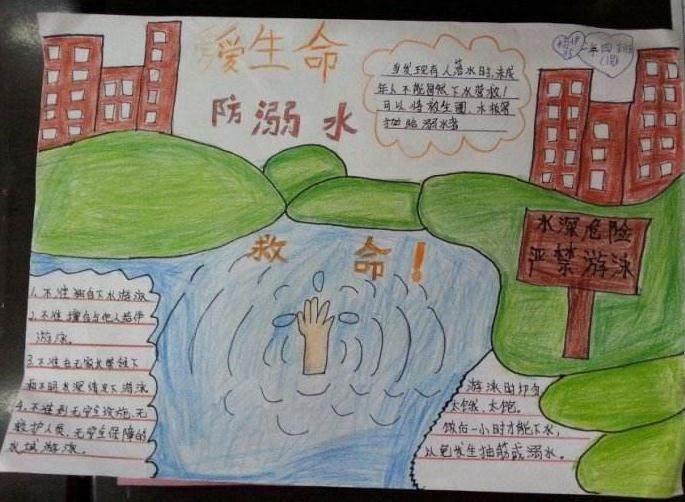 爱生命
防溺水
当发现有人落水时,未成
年人不能冒然下水营救!
可以将救生圈、木板等
抛给溺水者
二年四班
救命!
水深危险
严禁游泳
1.不准独自下水游泳
2.不准擅自与他人结伴
游泳。
3.不准在无家长带领下
和不明水深情况下游泳
4.不准到无安全设施、无
救护人员、无安全保障的
水域游泳。
游泳时切勿
太饿、太饱。
饭后一小时才能下水,
以免发生抽筋或溺水。